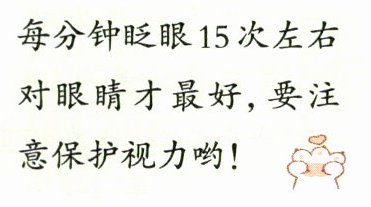 每分钟眨眼15次左右
对眼睛才最好，要注
意保护视力哟！